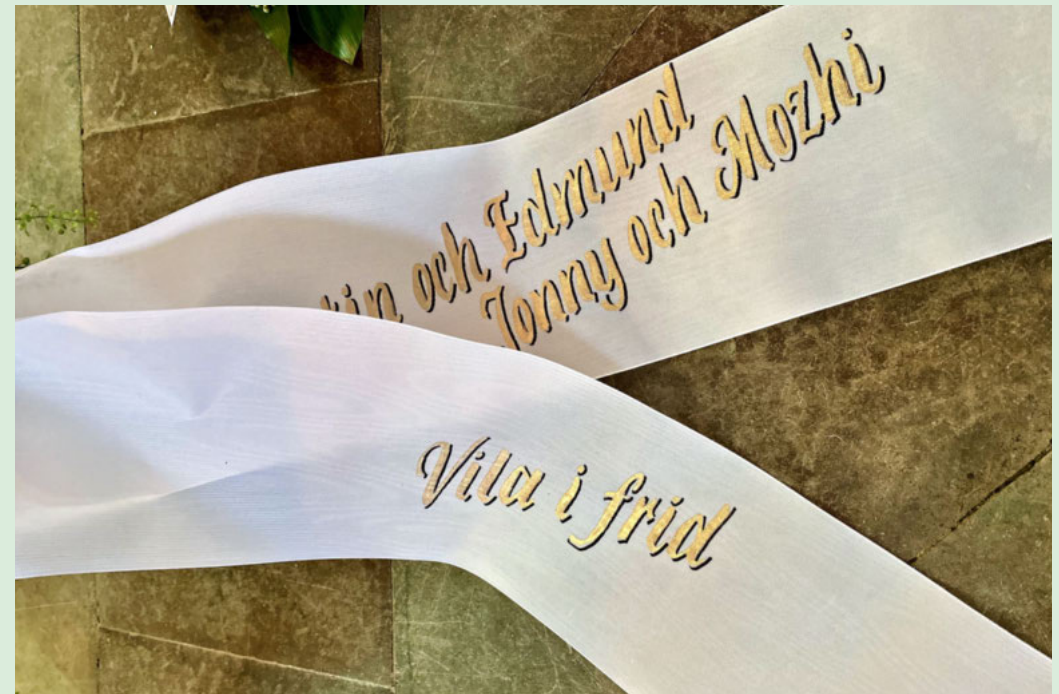 och Edmund
Jonny och Mozhi
Vila i frid